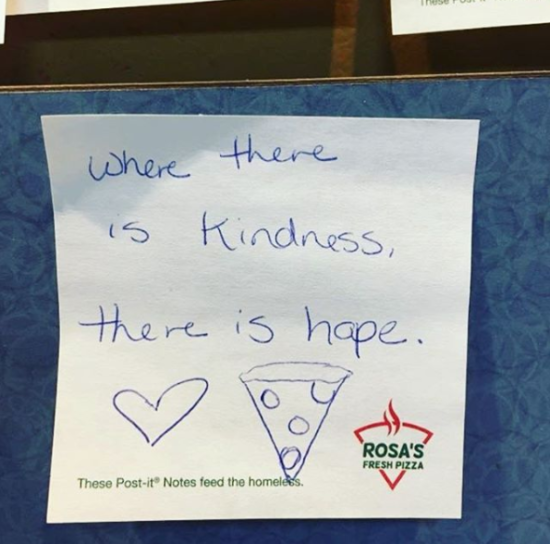 where there
is kindness,
there is hope.
ROSA'S
FRESH PIZZA
These Post-it® Notes feed the homeless.